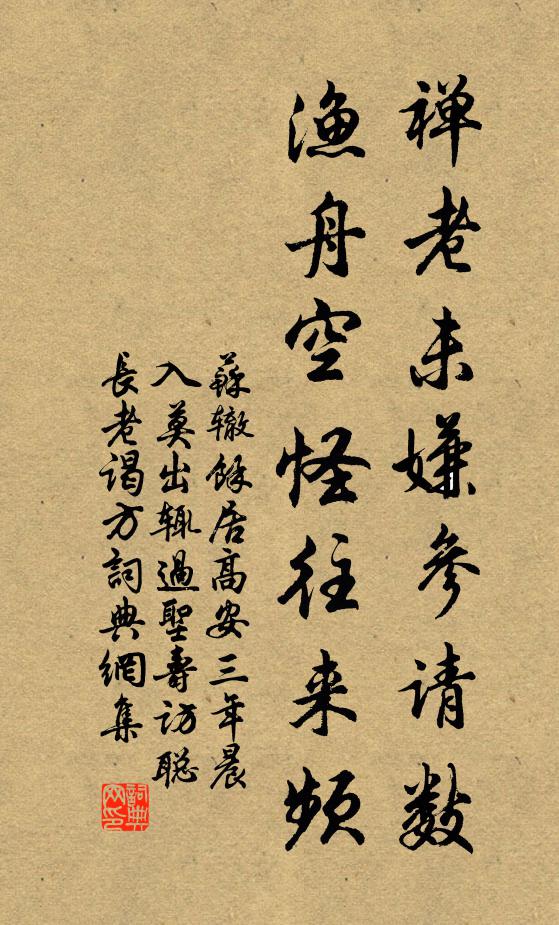 禅老未嫌參请数
渔舟空怪往来频
蘇辙餘居高安三年晨
入莫出辄過聖壽訪聪
長老谒方詞典網集
詞典
网印